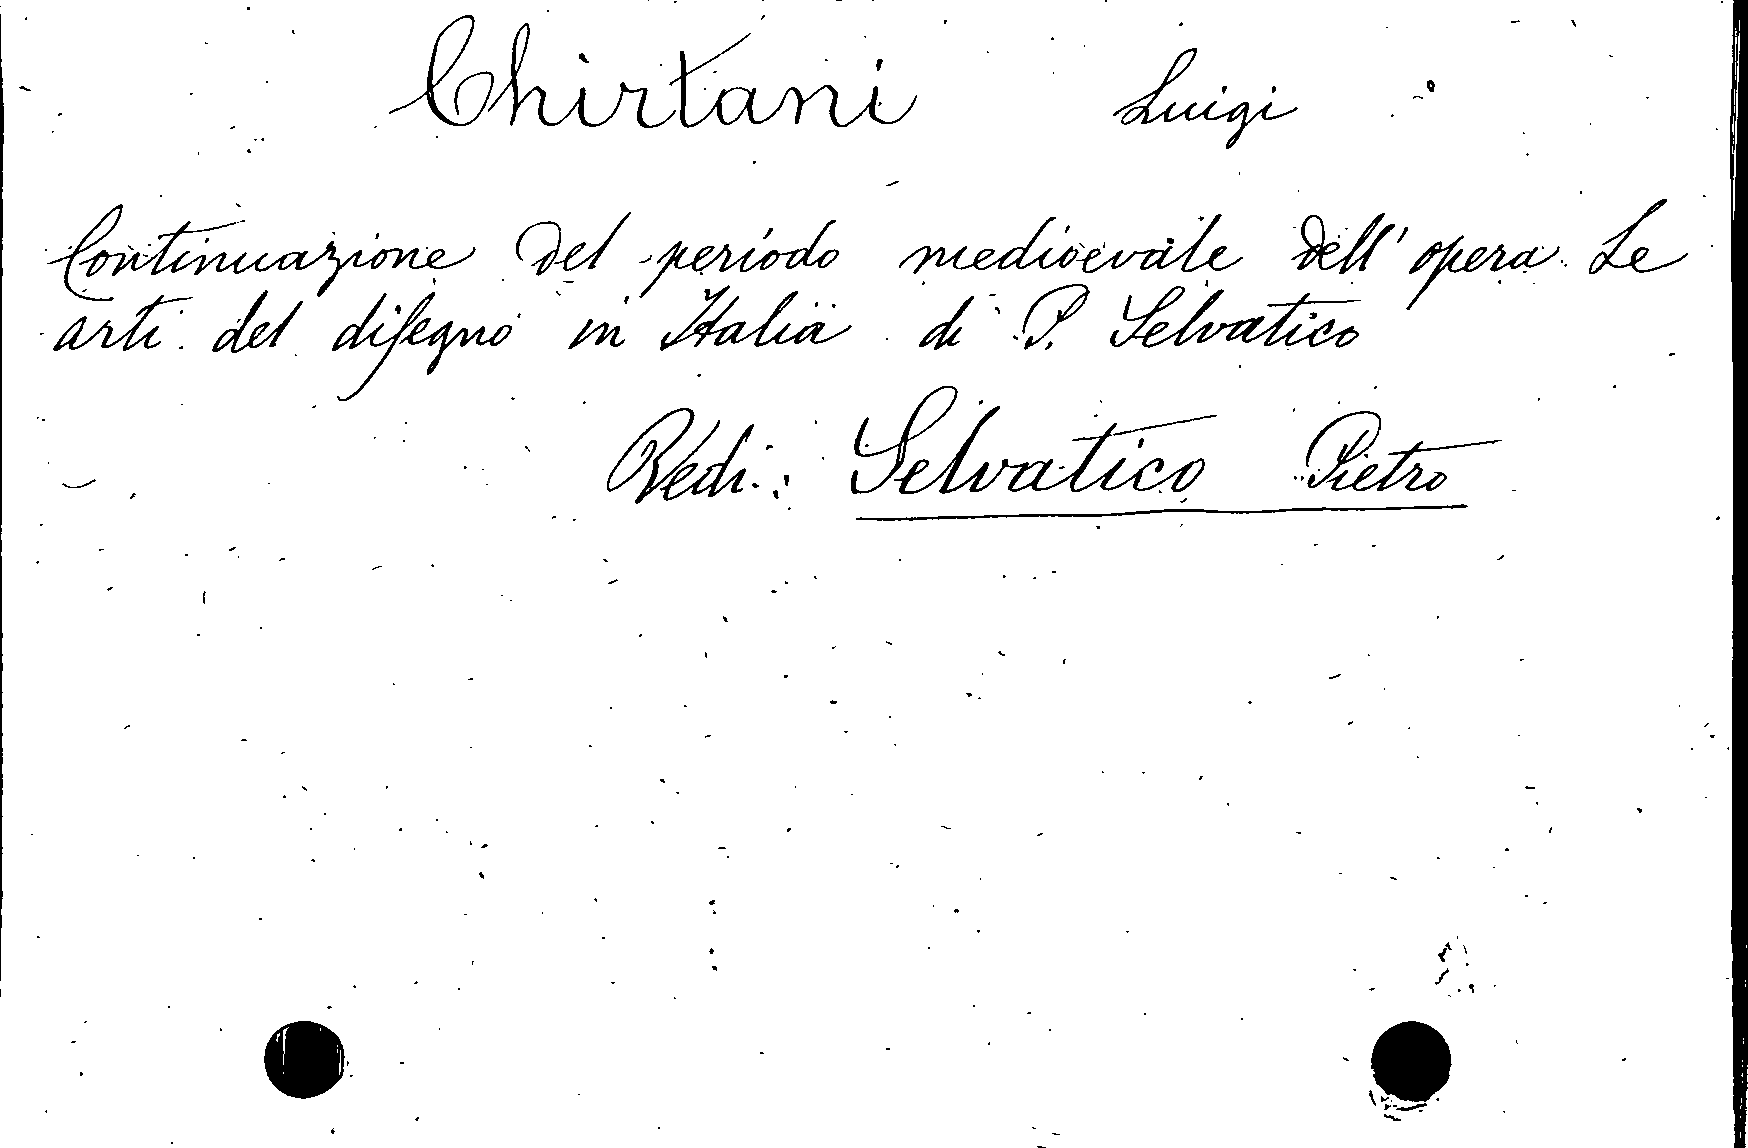 Chirtani Luigi
Continuazione del periodo medioevale dell'opera Le
arti del disegno in Italia di P. Selvatico
Vedi: Selvatico Pietro